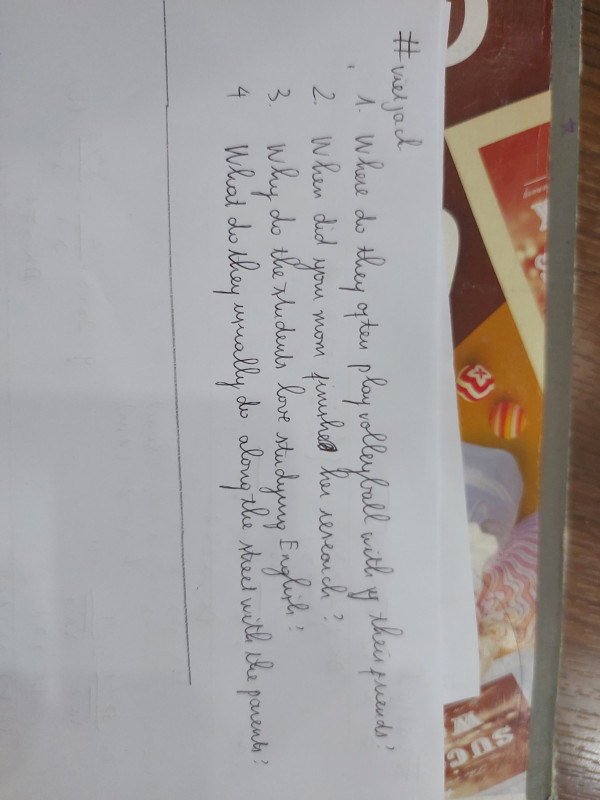 #vietjack
1. Where do they often play volleyball with their friends?
2. When did your mom finished her research?
3. Why do the students love studying English?
4 What do they usually do along the street with the parents?
SUG
W